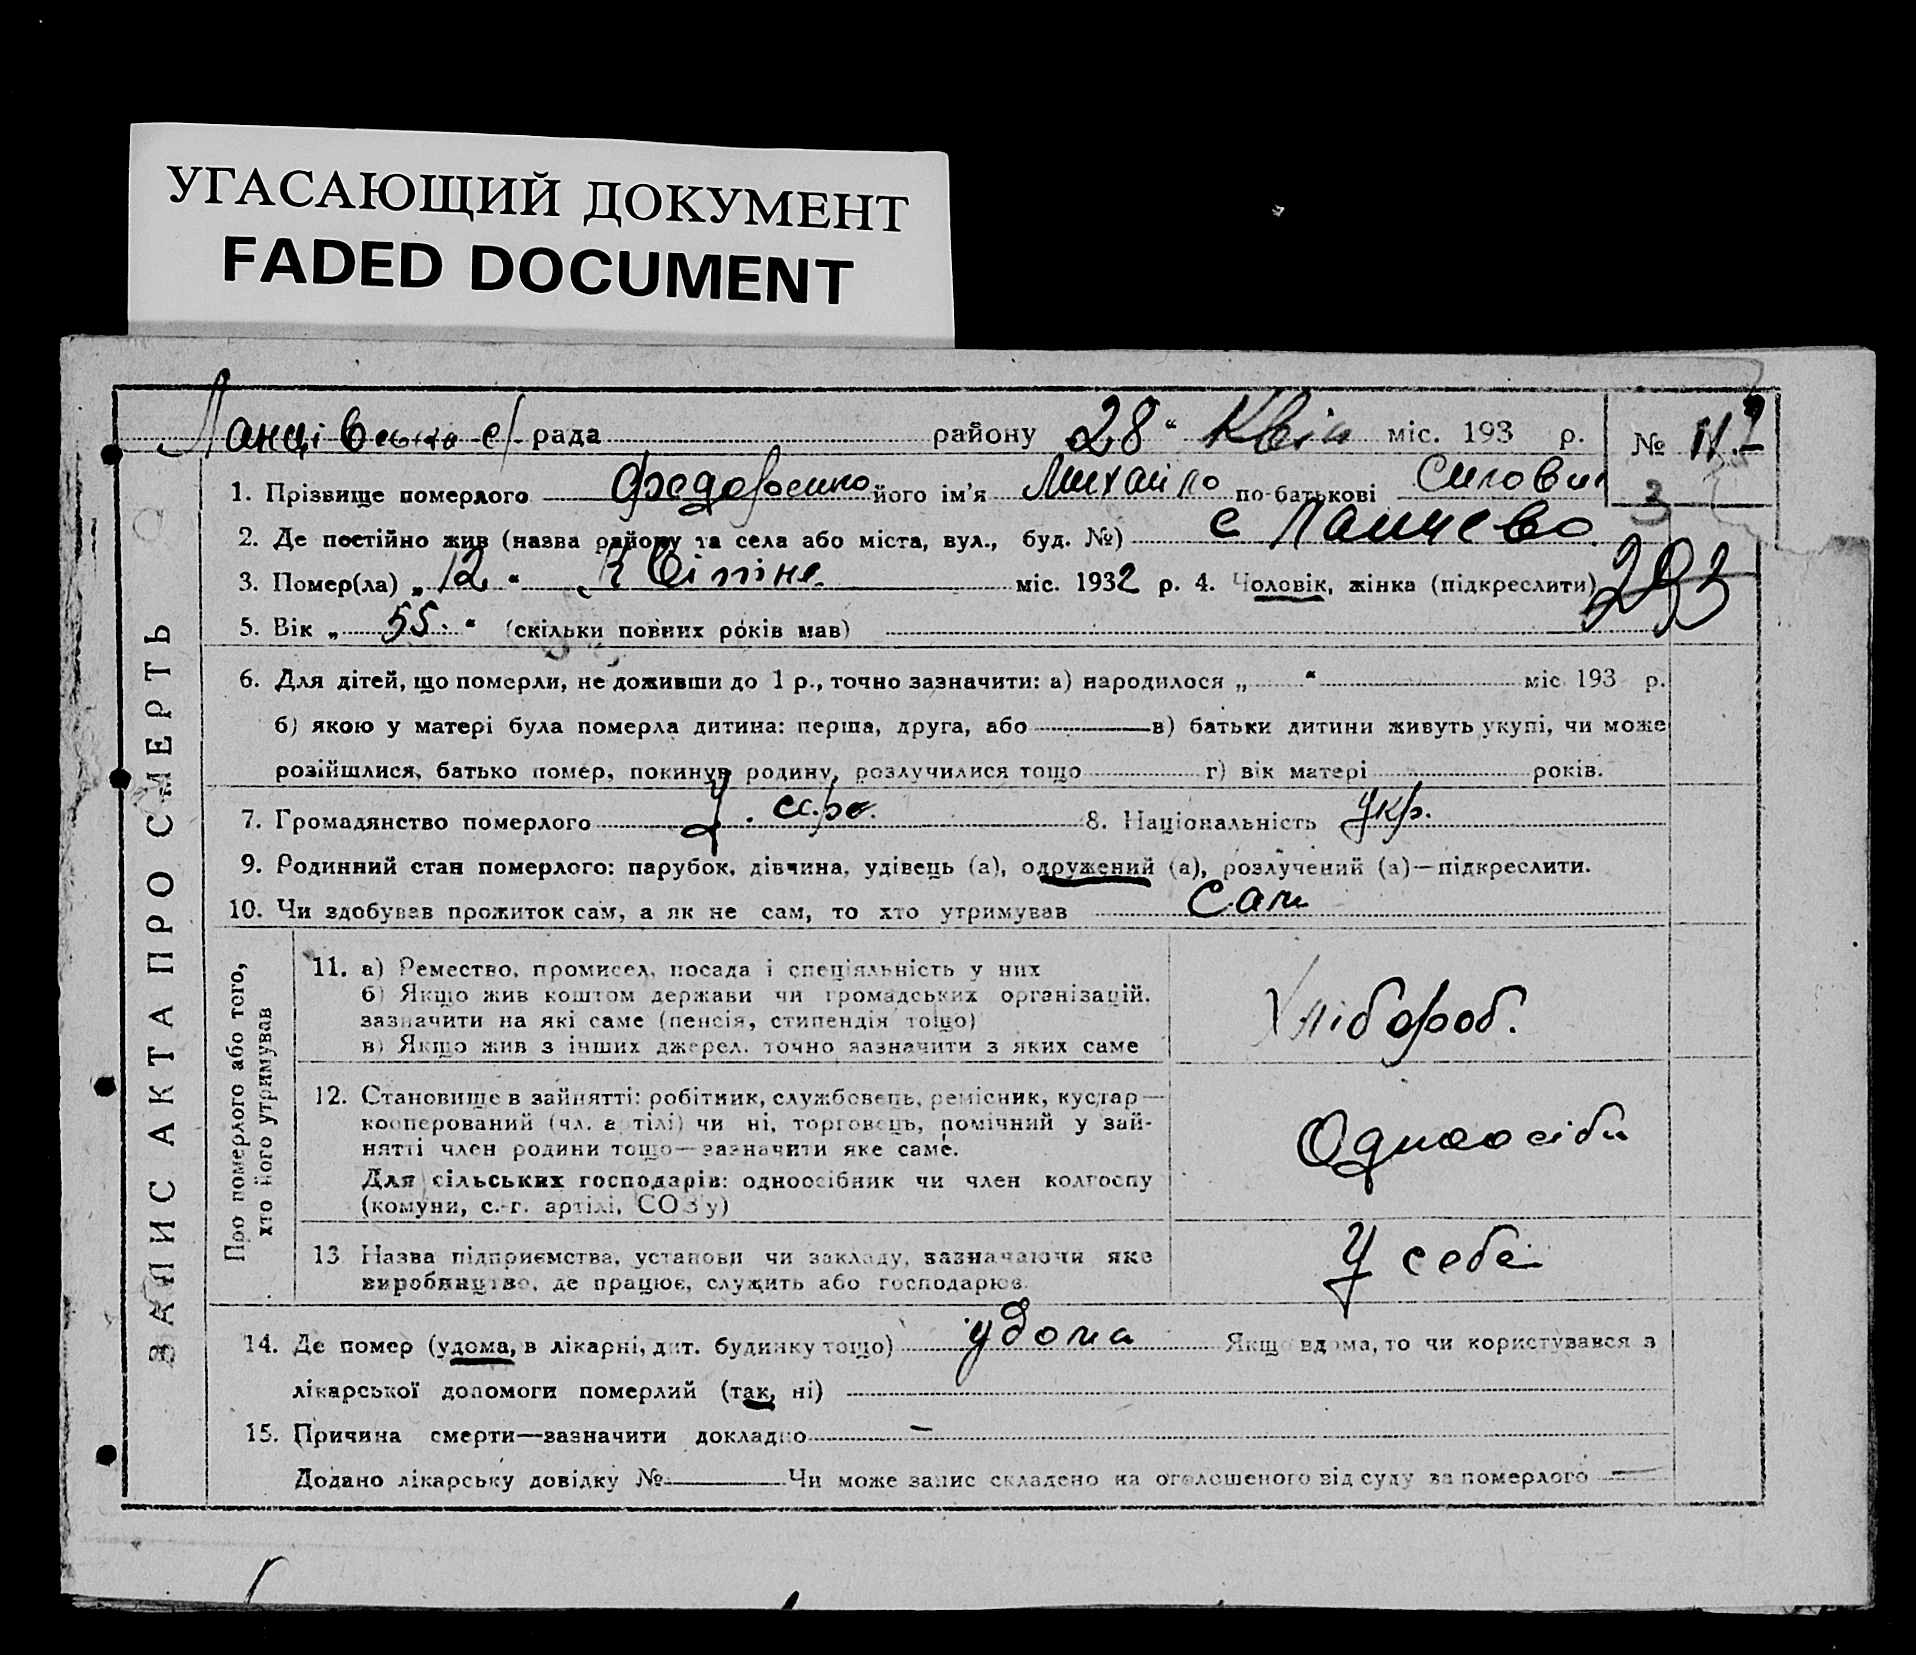 УГАСАЮЩИЙ ДОКУМЕНТ
FADED DOCUMENT
ЗАПИС АКТА ПРО СМЕРТЬ
с/ рада району 28 " Квіт міс. 193 р. № 11
1. Прізвище померлого Федоренко його ім'я Михайло по-батькові
2. Де постійно жив (назва району та села або міста, вул., буд. №) с
3. Помер(ла) „ 12 " Квітне міс. 1932 р. 4. Чоловік, жінка (підкреслити) 293
5. Вік „ 55. " (скільки повних років мав)
6. Для дітей, що померли, не доживши до 1 р., точно зазначити: а) народилося „ " міс 193 р.
б) якою у матері була померла дитина: перша, друга, або в) батьки дитини живуть укупі, чи може
розійшлися, батько помер, покинув родину, розлучилися тощо г) вік матері років.
7. Громадянство померлого У. сср. 8. Національність Укр.
9. Родинний стан померлого: парубок, дівчина, удівець (а), одружений (а), розлучений (а)—підкреслити.
10. Чи здобував прожиток сам, а як не сам, то хто утримував Сам
Про померлого або того,
хто його утримував
11. а) Ремество, промисел, посада і спеціяльність у них
б) Якщо жив коштом держави чи громадських організацій,
зазначити на які саме (пенсія, стипендія тощо)
в) Якщо жив з інших джерел, точно зазначити з яких саме
Хлібороб.
12. Становище в зайнятті: робітник, службовець, ремісник, кустар—
кооперований (чл. артілі) чи ні, торговець, помічний у зай-
нятті член родини тощо—зазначити яке саме.
Для сільських господарів: одноосібник чи член колгоспу
(комуни, с.-г. артілі, СОЗ'у)
Одноосібн
13 Назва підприємства, установи чи закладу, зазначаючи яке
виробництво, де працює, служить або господарює
У себе
14. Де помер (удома, в лікарні, дит. будинку тощо) удома Якщо вдома, то чи користувався з
лікарської допомоги померлий (так, ні)
15. Причина смерти—зазначити докладно —
Додано лікарську довідку № Чи може запис складено на оголошеного від суду за померлого —